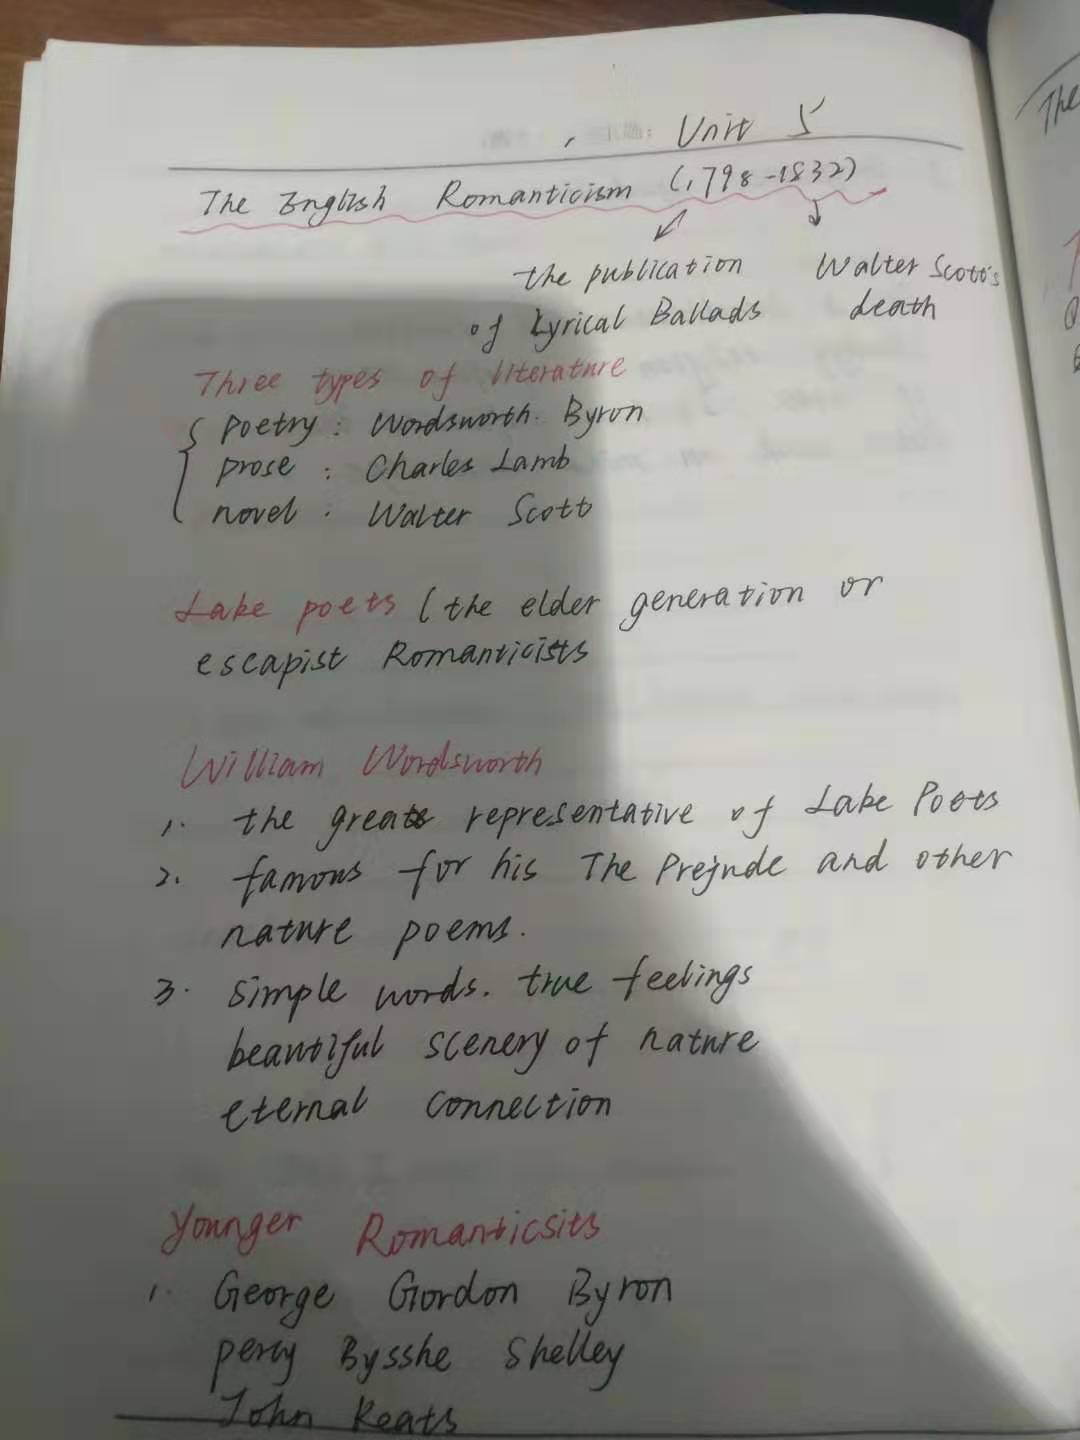 Unit 5
The English Romanticism (1798-1832)
the publication
of Lyrical Ballads
Walter Scott's
death
Three types of literature
poetry : Wordsworth. Byron
prose : Charles Lamb
novel : Walter Scott
Lake poets (the elder generation or
escapist Romanticists
William Wordsworth
1. the great representative of Lake Poets
2. famous for his The Prejude and other
nature poems.
3. simple words. true feelings
beautiful scenery of nature
eternal connection
Younger Romanticsits
1. George Gordon Byron
percy Bysshe Shelley
John Keats
The